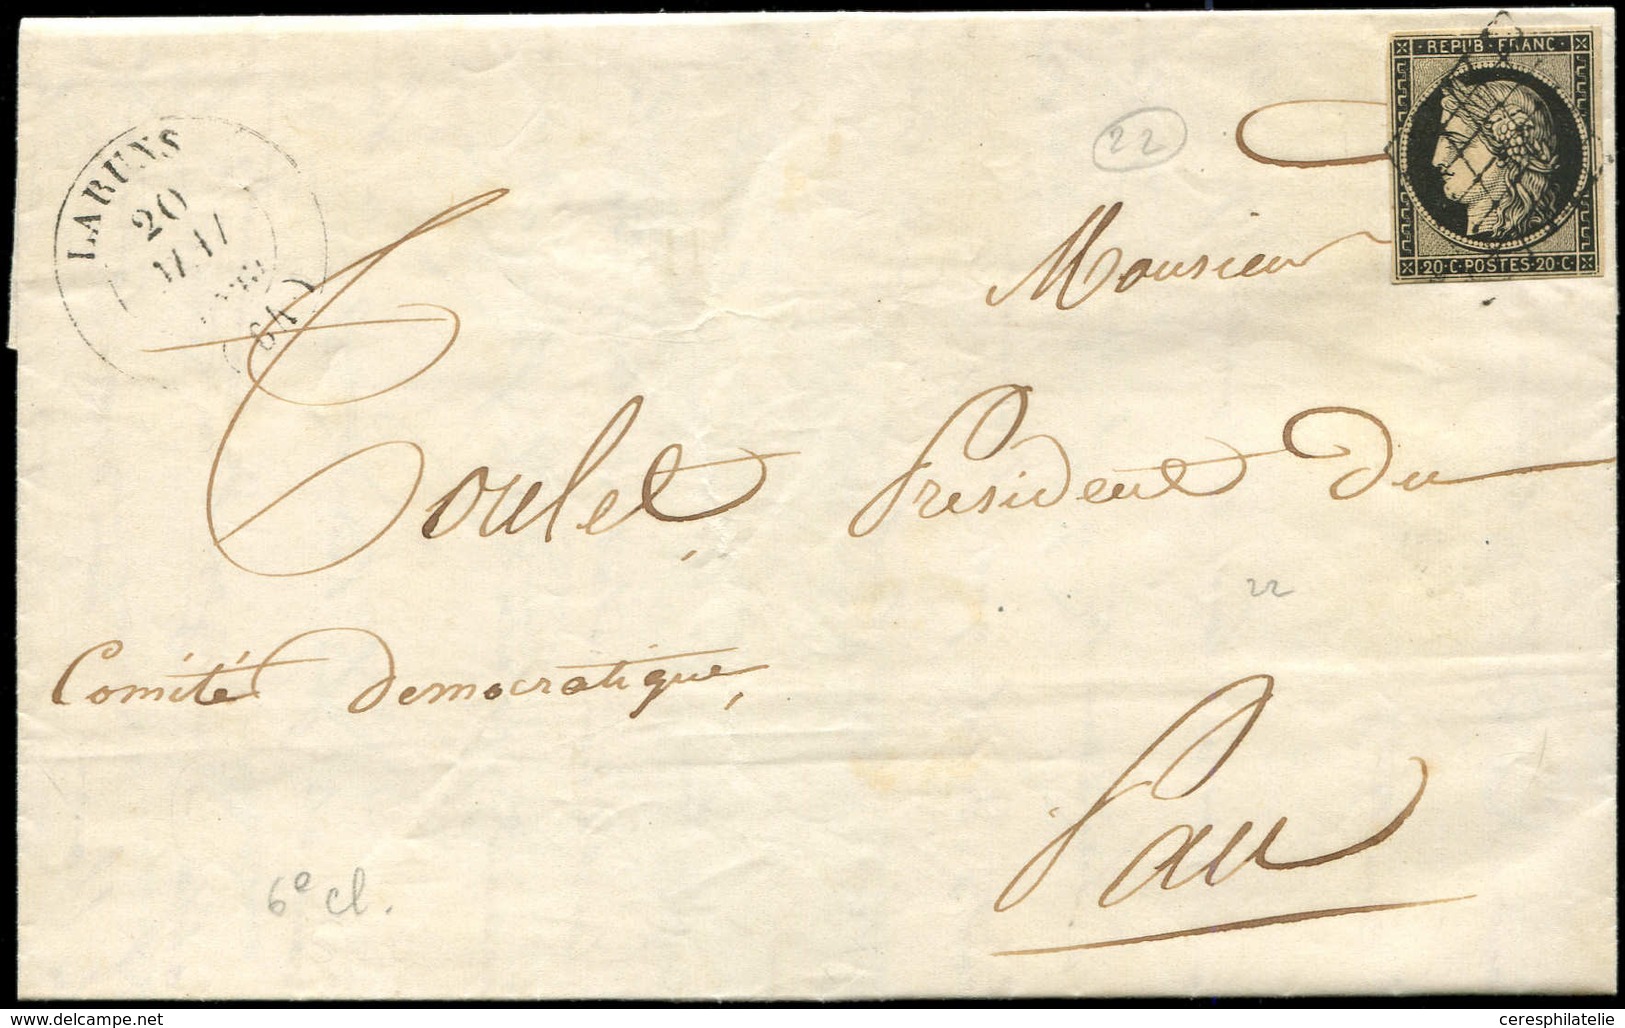 REPUB·FRANC·
20·C·POSTES·20·C
LARUNS
20
MAI
(64)
22
Monsieur
Toulet, President du
22
Comité democratique,
Pau
6e cl.
delcampe.net
ceresphilatelie